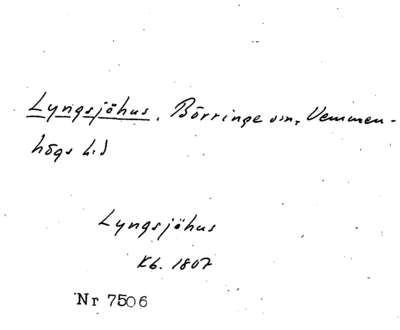 Lyngsjöhus. Börringe sn, Vemmen-
högs hd
Lyngsjöhus
Kb. 1807
Nr 7506